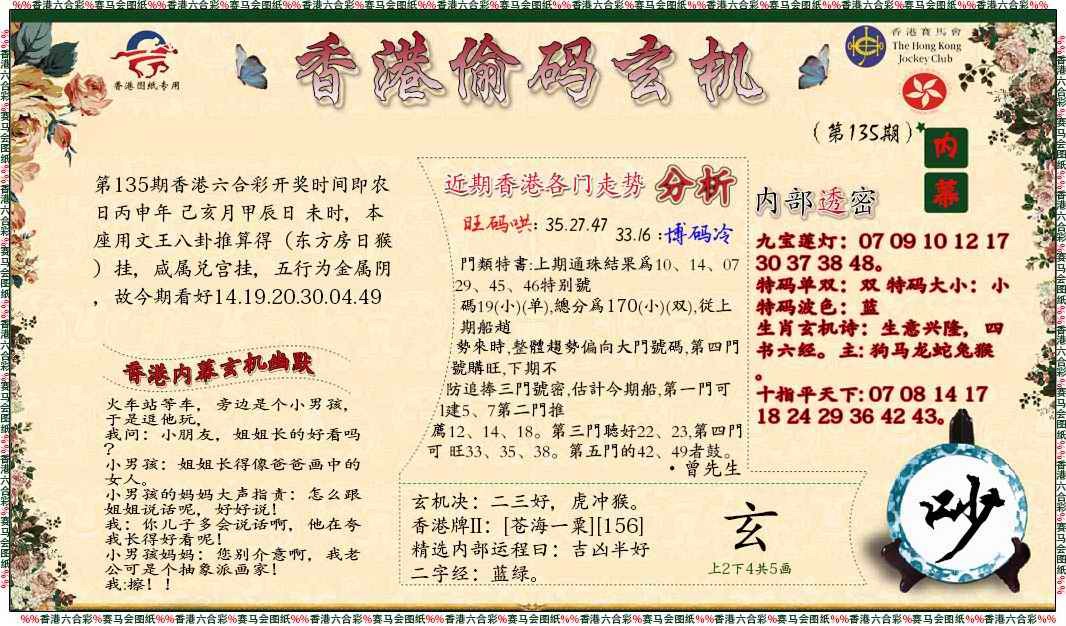 %%香港六合彩%赛马会图纸%%香港六合彩%赛马会图纸%%香港六合彩%赛马会图纸%%香港六合彩%赛马会图纸%%香港六合彩%赛马会图纸%%香港六合彩%赛马会图纸%%香港六合彩%赛马会图纸%%香港六合彩%%
香港图纸专用
香港偷码玄机
香港賽馬會
The Hong Kong
Jockey Club
(第135期)
内
幕
第135期香港六合彩开奖时间即农
日丙申年 己亥月甲辰日 未时，本
座用文王八卦推算得（东方房日猴
）挂，咸属兑宫挂，五行为金属阴
，故今期看好14.19.20.30.04.49
香港内幕玄机幽默
火车站等车，旁边是个小男孩，
于是逗他玩，
我问：小朋友，姐姐长的好看吗
?
小男孩：姐姐长得像爸爸画中的
女人。
小男孩的妈妈大声指责：怎么跟
姐姐说话呢，好好说！
我：你儿子多会说话啊，他在夸
我长得好看呢！
小男孩妈妈：您别介意啊，我老
公可是个抽象派画家！
我:擦！！
近期香港各门走势 分析
旺码哄: 35.27.47
33.16 :博码冷
門類特書:上期通珠結果爲10、14、07
29、45、46特别號
碼19(小)(单),總分爲170(小)(双),從上
期船趙
勢來時,整體趨勢偏向大門號碼,第四門
號購旺,下期不
防追捧三門號密,估計今期船,第一門可
1建5、7第二門推
薦12、14、18。第三門聴好22、23,第四門
可 旺33、35、38。第五門的42、49者鼓。
·曾先生
内部透密
九宝莲灯：07 09 10 12 17
30 37 38 48。
特码单双：双 特码大小：小
特码波色：蓝
生肖玄机诗：生意兴隆，四
书六经。主: 狗马龙蛇兔猴
。
十指平天下: 07 08 14 17
18 24 29 36 42 43。
玄机决：二三好，虎冲猴。
香港牌II：[苍海一粟][156]
精选内部运程曰：吉凶半好
二字经：蓝绿。
玄
上2下4共5画
吵
%%香港六合彩%赛马会图纸%%香港六合彩%赛马会图纸%%香港六合彩%赛马会图纸%%香港六合彩%赛马会图纸%%香港六合彩%赛马会图纸%%香港六合彩%赛马会图纸%%香港六合彩%赛马会图纸%%香港六合彩%%